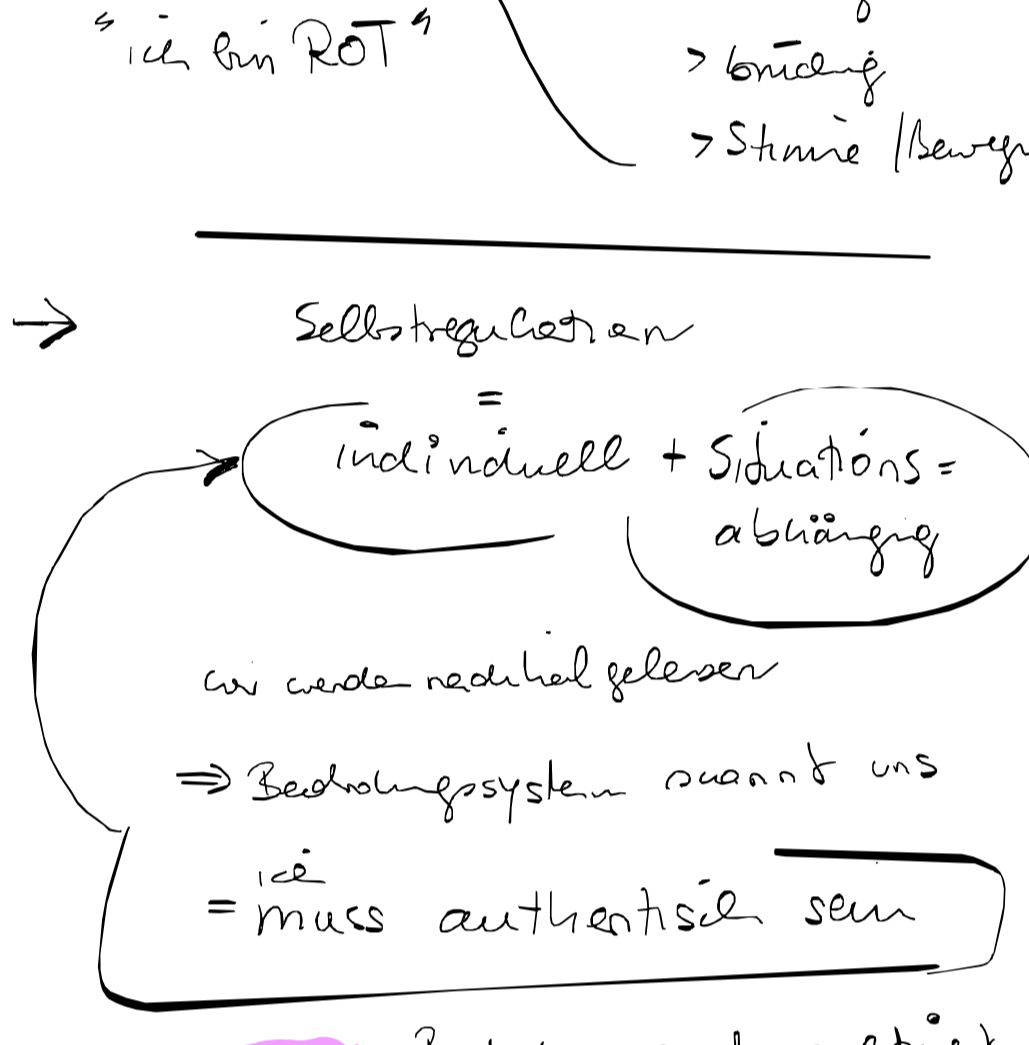 "ich bin ROT"
>
> Stimme /Beweg
→ Selbstregulation
=
individuell + Situations=
abhängig
wir werden nachteil gelesen
⇒ Bedrohungssystem scannt uns
ich
= muss authentisch sein